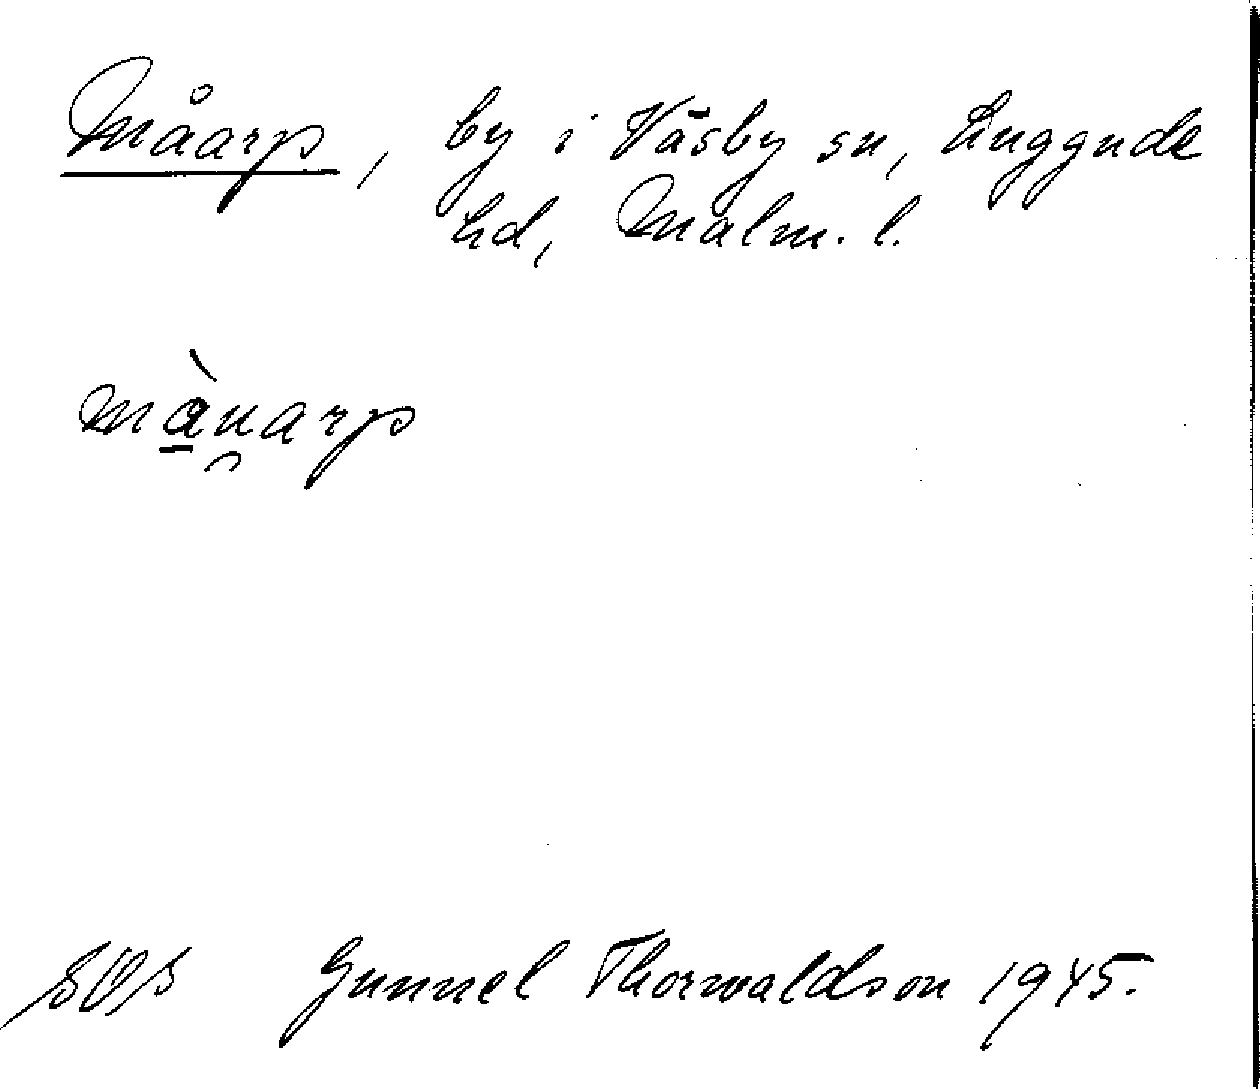 Måarp, by i Väsby sn, Luggude
hd, Malm. l.
mằu̯arp
Gunnel Thorwaldson 1945.